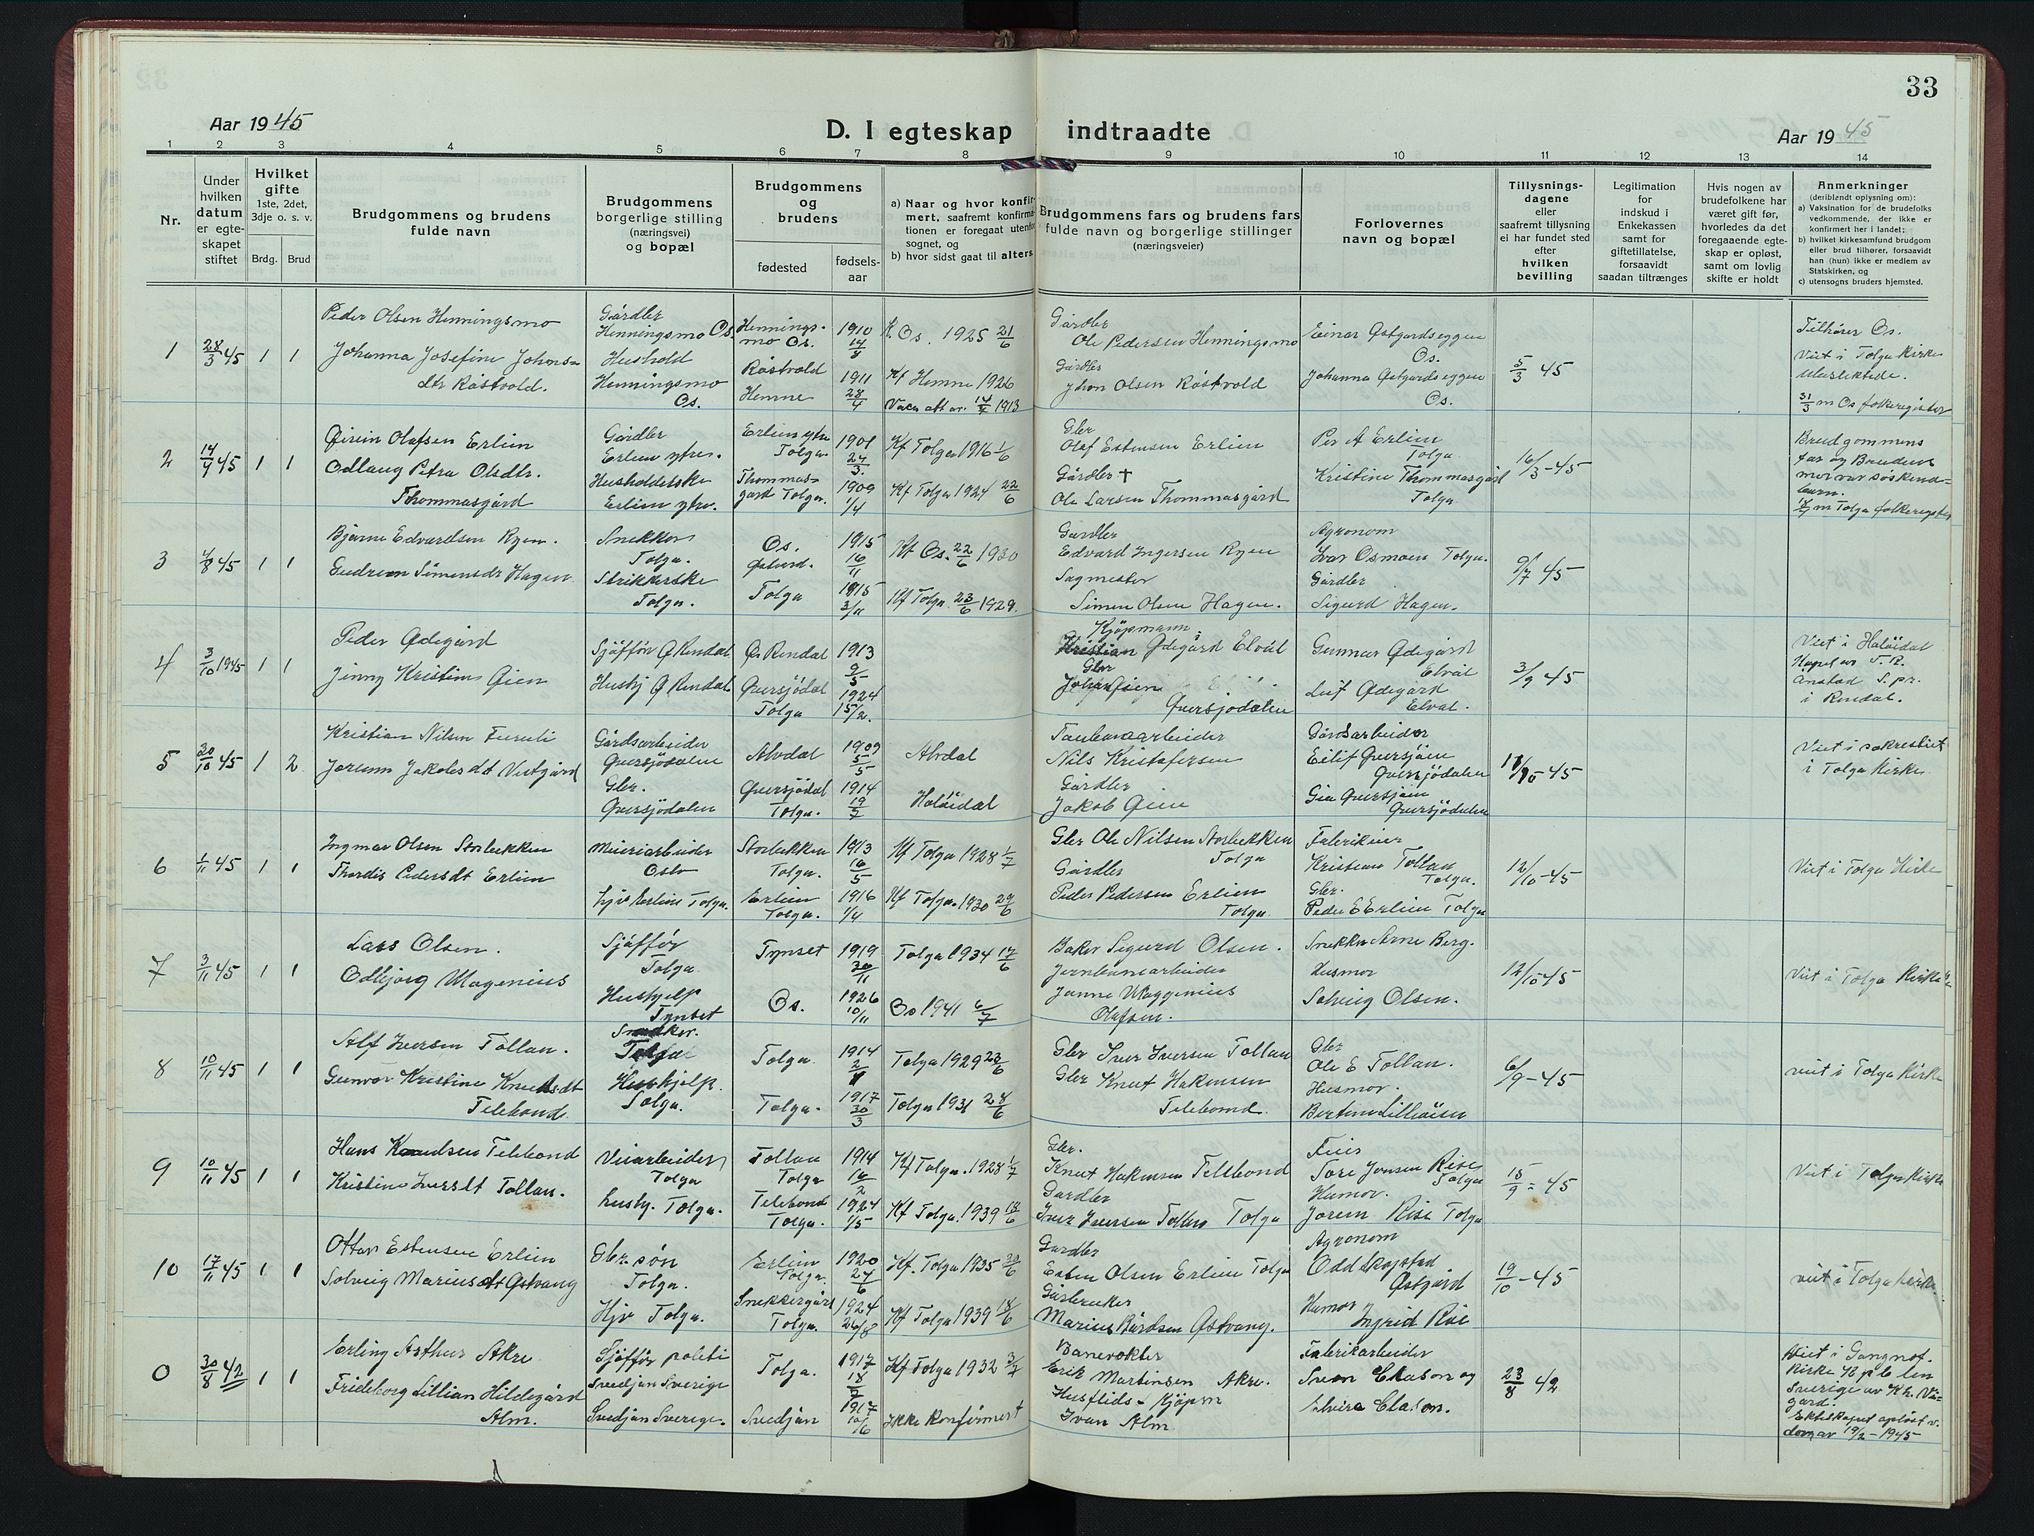 33
Aar 1945
D. I egteskap indtraadte
Aar 1945
1 2 3 4 5 6 7 8 9 10 11 12 13 14
Nr.
Under hvilken datum er egteskapet stiftet
Hvilket gifte 1ste, 2det, 3dje o. s. v.
Brdg. Brud
Brudgommens og brudens fulde navn
Brudgommens borgerlige stilling (næringsvei) og bopæl
Brudgommens og brudens
fødested
fødselsaar
a) Naar og hvor konfirmert, saafremt konfirmationen er foregaat utenfor sognet, og
b) hvor sidst gaat til alters
Brudgommens fars og brudens fars fulde navn og borgerlige stillinger (næringsveier)
Forlovernes navn og bopæl
Tillysningsdagene eller saafremt tillysning ei har fundet sted efter hvilken bevilling
Legitimation for indskud i Enkekassen samt for giftetillatelse, forsaavidt saadan tiltrænges
Hvis nogen av brudefolkene har været gift før, hvorledes da det foregaaende egteskap er opløst, samt om lovlig skifte er holdt
Anmerkninger
(deriblandt oplysning om):
a) Vaksination for de brudefolks vedkommende, der ikke er konfirmert her i landet;
b) hvilket kirkesamfund brudgom eller brud tilhører, forsaavidt han (hun) ikke er medlem av Statskirken, og
c) utensogns bruders hjemsted.
1 28/3 45 1 1
Peder Olsen Henningsmo
Johanna Josefine Johnsdtr Råstvold.
Gårdbr Henningsmo Os.
Hushold Henningsmo Os.
Henningsmo Os. 1910 14/8
Råstvold Hemne 1911 28/4
K. Os. 1925 21/6
Kf Hemne 1926
Vacc. att av. 14/4 1913
Gårdbr
Ole Pedersen Henningsmo
Gårdbr
John Olsen Råstvold
Einar Østgårdseggen Os.
Johanna Østgårdseggen Os.
5/3 45
Tilhører Os.
Viet i Tolga Kirke
31/3 m Os folkeregister
2 14/4 45 1 1
Olafsen Erlien
Odlaug Petra Olsdtr.
Thommasgård
Gårdbr Erlien ytre.
Erlien ytre.
Erlien ytre Tolga 1901 27/3
Thommasgård Tolga. 1909 1/4
Kf Tolga 1916 1/6
Kf Tolga 1924 22/6
Gbr
Olaf Estensen Erlien
Gårdbr †
Ole Larsen Thommasgård
Per A Erlien Tolga.
Kristine Thommasgård Tolga.
16/3-45
Brudgommens far og Brudens mor var søskenbarn.
m Tolga folkeregister
3 4/8 45 1 1
Bjarne Edvardsen Ryen.
Gudrun Simensdr Hagen.
Snekker Tolga.
Strikkerske Tolga.
Os. Østerd. 1915 16/11
Tolga 1915 3/11
Kf Os. 22/6 1930
Kf Tolga 23/6 1929.
Gårdbr
Edvard Ingersen Ryen
Sagmester
Simen Olsen Hagen.
Agronom
Ivar Osmoen Tolga.
Gårdbr
Sigurd Hagen.
9/7 45
4 3/10 1945 1 1
Peder Ødegård
Jenny Kristine Øien
Sjåffør Ø Rendal
Hushj Ø Rendal
Ø. Rendal 1913 9/5
Øversjødal Tolga 1924 15/2.
Kjøpmann
Kristian Ødegård Elvål
Gbr
Johan Øien
Øversjødalen
Gunnar Ødegård Elvål
Leif Ødegård Elvål.
3/9 45
Viet i Holøidal Kapel av S. R. Anstad S. pr. i Rendal.
5 20/10 45 1 2
Kristian Nilsen Furuli
Jorunn Jakobsdt Vestgård
Gårdsarbeider Øversjødalen
Gbr. Øversjødalen
Alvdal 1909 5/5
Øversjødal Tolga. 1914 19/7
Alvdal
Holøidal
Taubanearbeider
Nils Kristofersen
Gårdbr
Jakob Øien
Gårdsarbeider
Eilif Øversjøen Øversjødalen
Gia Øversjøen Øversjødalen
11/10-45
Viet i sakrestiet i Tolga Kirke
6 1/11 45 1 1
Ingmar Olsen Storbekken
Thordis Pedersdt Erlien
Meieriarbeider Oslo
hjv Erlien Tolga.
Storbekken Tolga. 1913 16/5
Erlien Tolga. 1916 1/4
Kf Tolga 1928 1/7
Kf Tolga. 1930 29/6
Gbr Ole Nilsen Storbekken Tolga
Gårdbr
Peder Pedersen Erlien Tolga
Fabrikeier
Kristian Tollan Tolga.
Gbr.
Peder E Erlien Tolga
12/10-45
Viet i Tolga Kirke
7 3/11 45 1 1
Lars Olsen.
Odbjørg Magenius
Sjåffør Tolga.
Hushjelp Tynset
Tynset 1919 30/11
Os. 1926 10/11
Tolga 1934 17/6
Os 1941 6/7
Baker Sigurd Olsen.
Jernbanearbeider
Janne Maggenius
Olafsen.
Snekker Arne Berg.
Husmor
Solveig Olsen.
12/10 45
Viet i Tolga Kirke
8 10/11 45 1 1
Alf Iversen Tollan.
Gunvor Kristine Knudsdt
Telebond
Snekker. Tolga
Hushjelp. Tolga.
Tolga. 1914
Tolga. 1917 30/3
Tolga 1929 23/6
Tolga 1931 28/6
Gbr Iver Iversen Tollan
Gbr Knut Hakensen
Telebond.
Gbr
Ole E Tollan.
Husmor.
Bertine Lilleøien
6/9-45
viet i Tolga Kirke
9 10/11 45 1 1
Hans Knudsen Telebond
Kristine Iversdt Tollan.
Veiarbeider Tolga
hushj. Tolga.
Tollan Tolga 1914 16/2
Telebond Tolga. 1924 1/5
Kf Tolga. 1928 1/7
Kf Tolga. 1939 18/6
Gbr.
Knut Hakensen Telebond
Gårdbr
Iver Iversen Tollan Tolga
Tore Jonsen Rise Tolga
Husmor.
Jorun Rise Tolga
15/9-45
Viet i Tolga Kirke
10 17/11 45 1 1
Ottar Estensen Erlien
Solveig Mariusdt Østvang
Gbr. søn Tolga.
Hjv Tolga.
Erlien Tolga. 1920 27/6
Snekkergård Tolga. 1924 26/8
Kf. Tolga 1935 30/6
Kf Tolga 1939 18/6
Gårdbr
Esten Olsen Erlien Tolga
Gårbruker
Marius Bårdsen Østvang.
Agronom
Odd Kopstad Østgård
Husmor
Ingrid Rise
19/10-45
viet i Tolga Kirke
0 30/8 42 1 1
Erling Arthur Akre
Frideborg Lillian Hildegård
Alm.
Sjåffør politi
Svedjan Sverige
Svedjan Sverige.
Tolga. 1917 18/7
Svedjan 1917
Kf Tolga 1932 3/7
Ikke konfirmert
Banevokter
Erik Martensen Akre.
Husflids-Kjøpm
Ivan Alm
Fabrikarbeider
Sven Elason og
Elvira Elason.
23/8 42
Viet i
Sverige av
Ekteskapet opløst v. dom av 19/2-1945